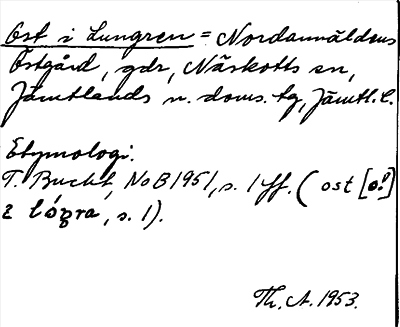 Öst i Lungren = Nordannäldens
Östgård, gdr, Näskotts sn,
Jämtlands n. doms. tg, Jämtl. l.
Etymologi.
T. Bucht, NoB 1951, s. 1 ff. ( ost [o!]
, s. 1).
Th. A. 1953.